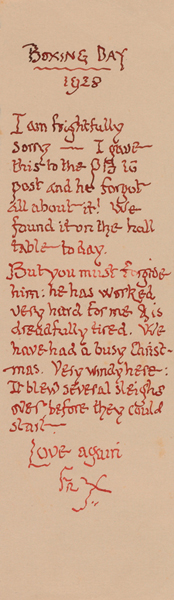 BOXING DAY
1928
I am frightfully
sorry — I gave
this to the P.B. to
post and he forgot
all about it! We
found it on the hall
table to day.
But you must forgive
him: he has worked
very hard for me & is
dreadfully tired. We
have had a busy Christ-
mas. Very windy here:
It blew several sleighs
over before they could
start.
Love again
Fr X